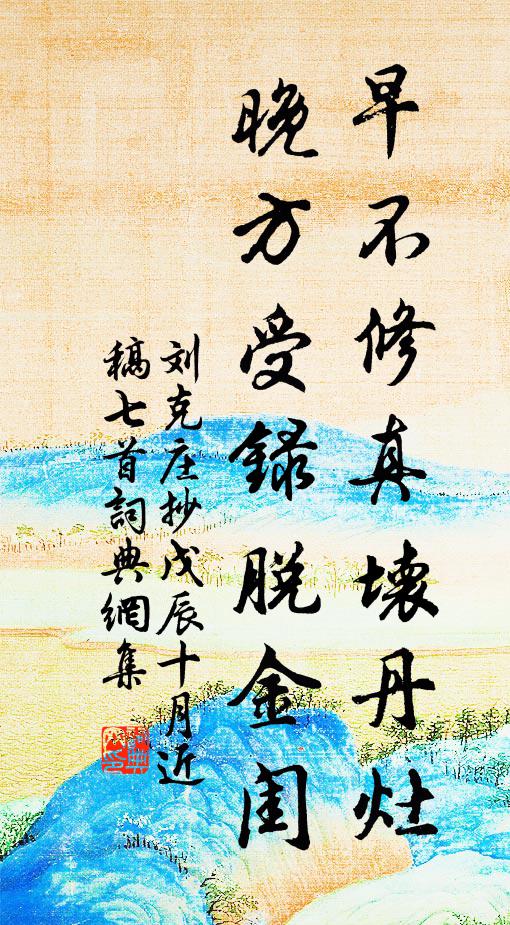 早不修真壞丹灶
晚方受錄脫金閨
刘克庄抄戊辰十月近
稿七首詞典網集